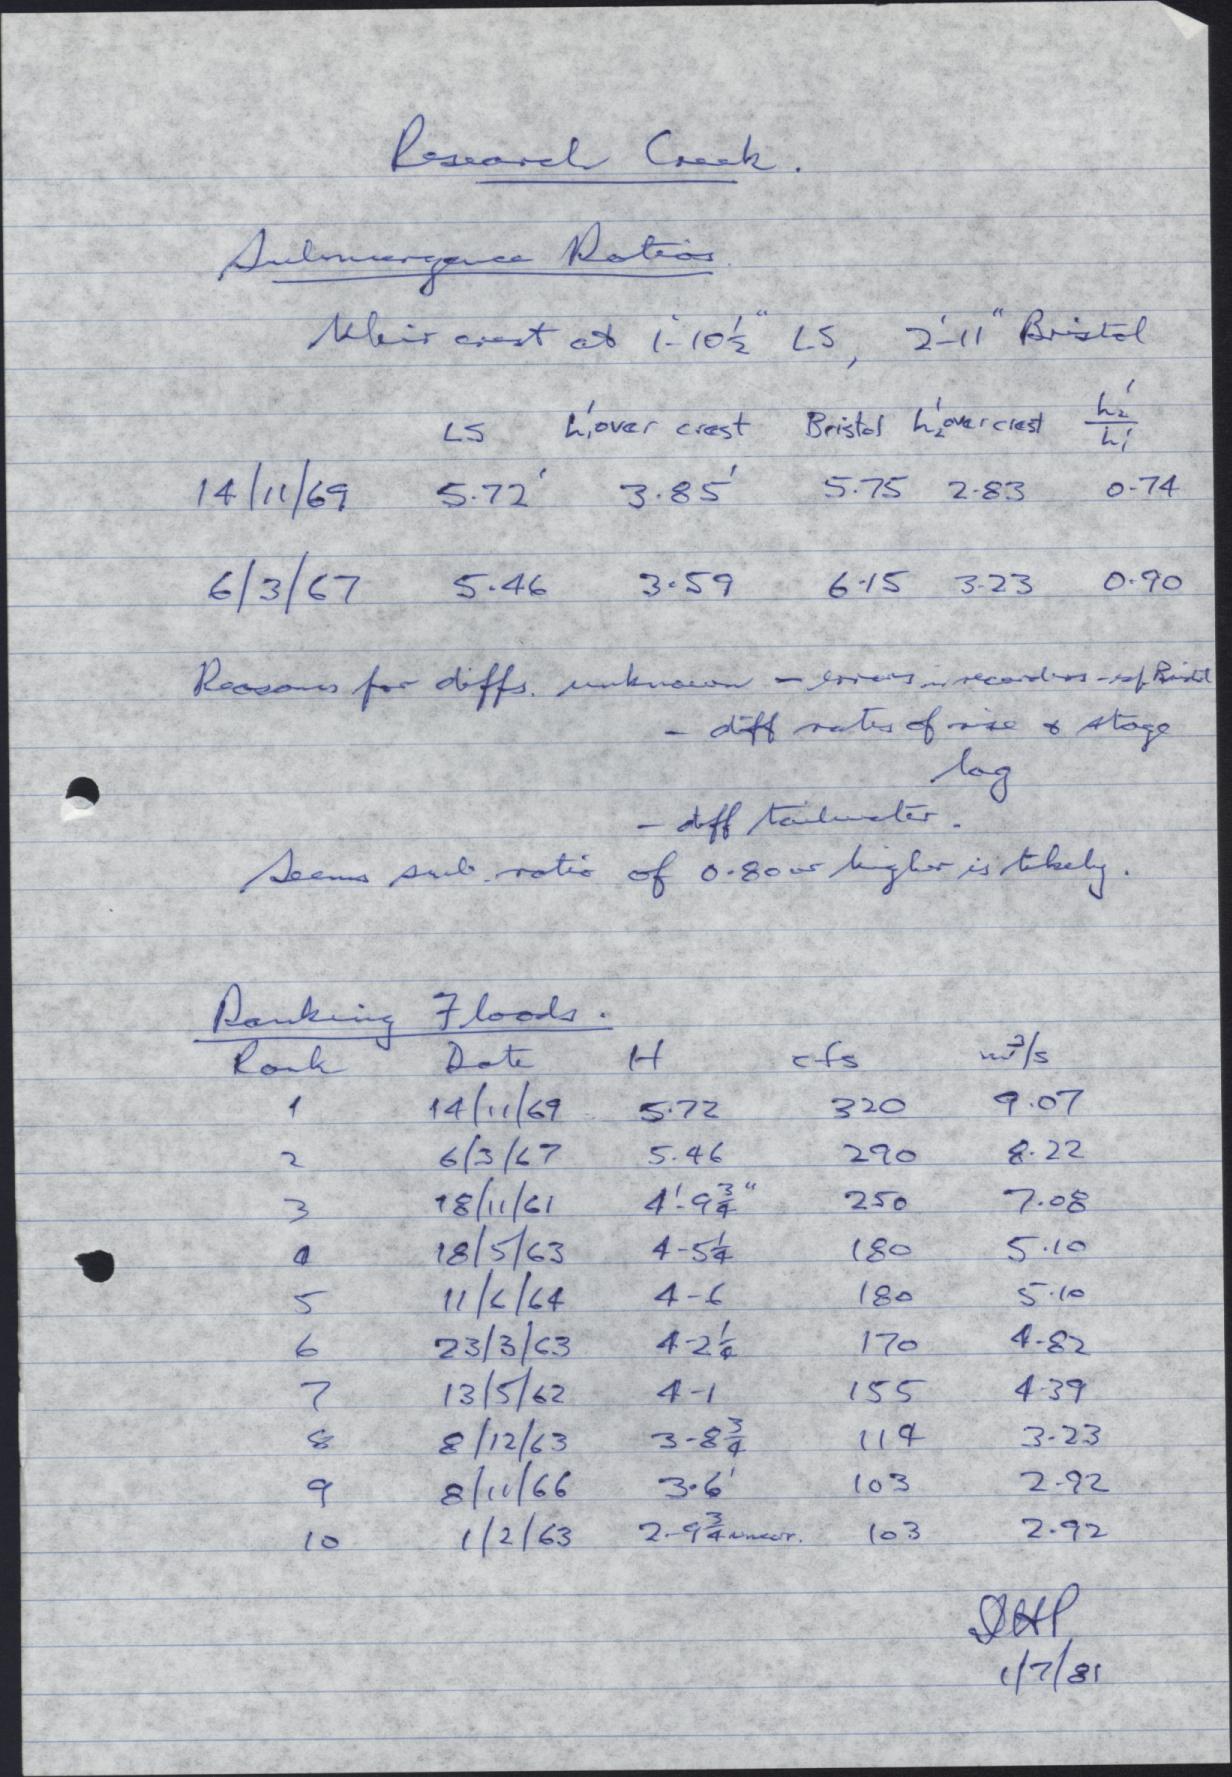 Research Creek.
Submergence Ratios
Weir crest at 1'-10½" LS, 2'-11" Bristol
LS h₁' over crest Bristol h₂' over crest h₂'/h₁'
14/11/69 5.72' 3.85' 5.75 2.83 0.74
6/3/67 5.46 3.59 6.15 3.23 0.90
Reasons for diffs. unknown - errors in recorders - esp Bristol
- diff rates of rise & stage
lag
- diff tailwater.
Seems sub. ratio of 0.80 or higher is likely.
Ranking Floods.
Rank Date H cfs m³/s
1 14/11/69 5.72 320 9.07
2 6/3/67 5.46 290 8.22
3 18/11/61 4'-9¾" 250 7.08
4 18/5/63 4-5¼ 180 5.10
5 11/6/64 4-6 180 5.10
6 23/3/63 4-2¼ 170 4.82
7 13/5/62 4-1 155 4.39
8 8/12/63 3-8¾ 114 3.23
9 8/11/66 3.6' 103 2.92
10 1/2/63 2-9¾ uncor. 103 2.92
DHP
1/7/81